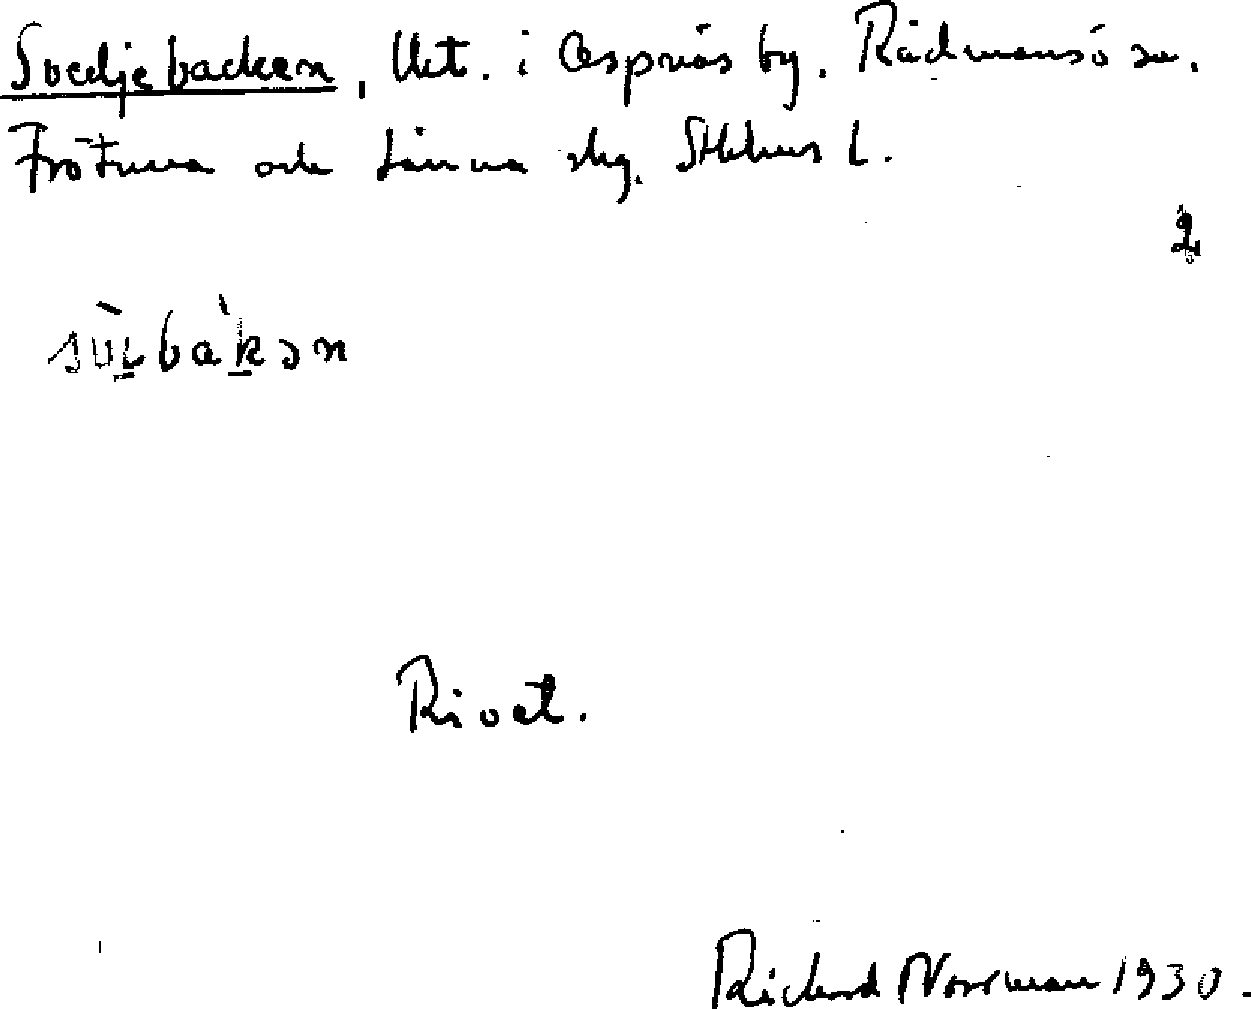 Svedjebacken, Ukt. i Aspnäs by. Rådmansö sn.
Frötuna och Länna skg. Sthlms L.
2
Rivet.
Richard Norrman 1930.